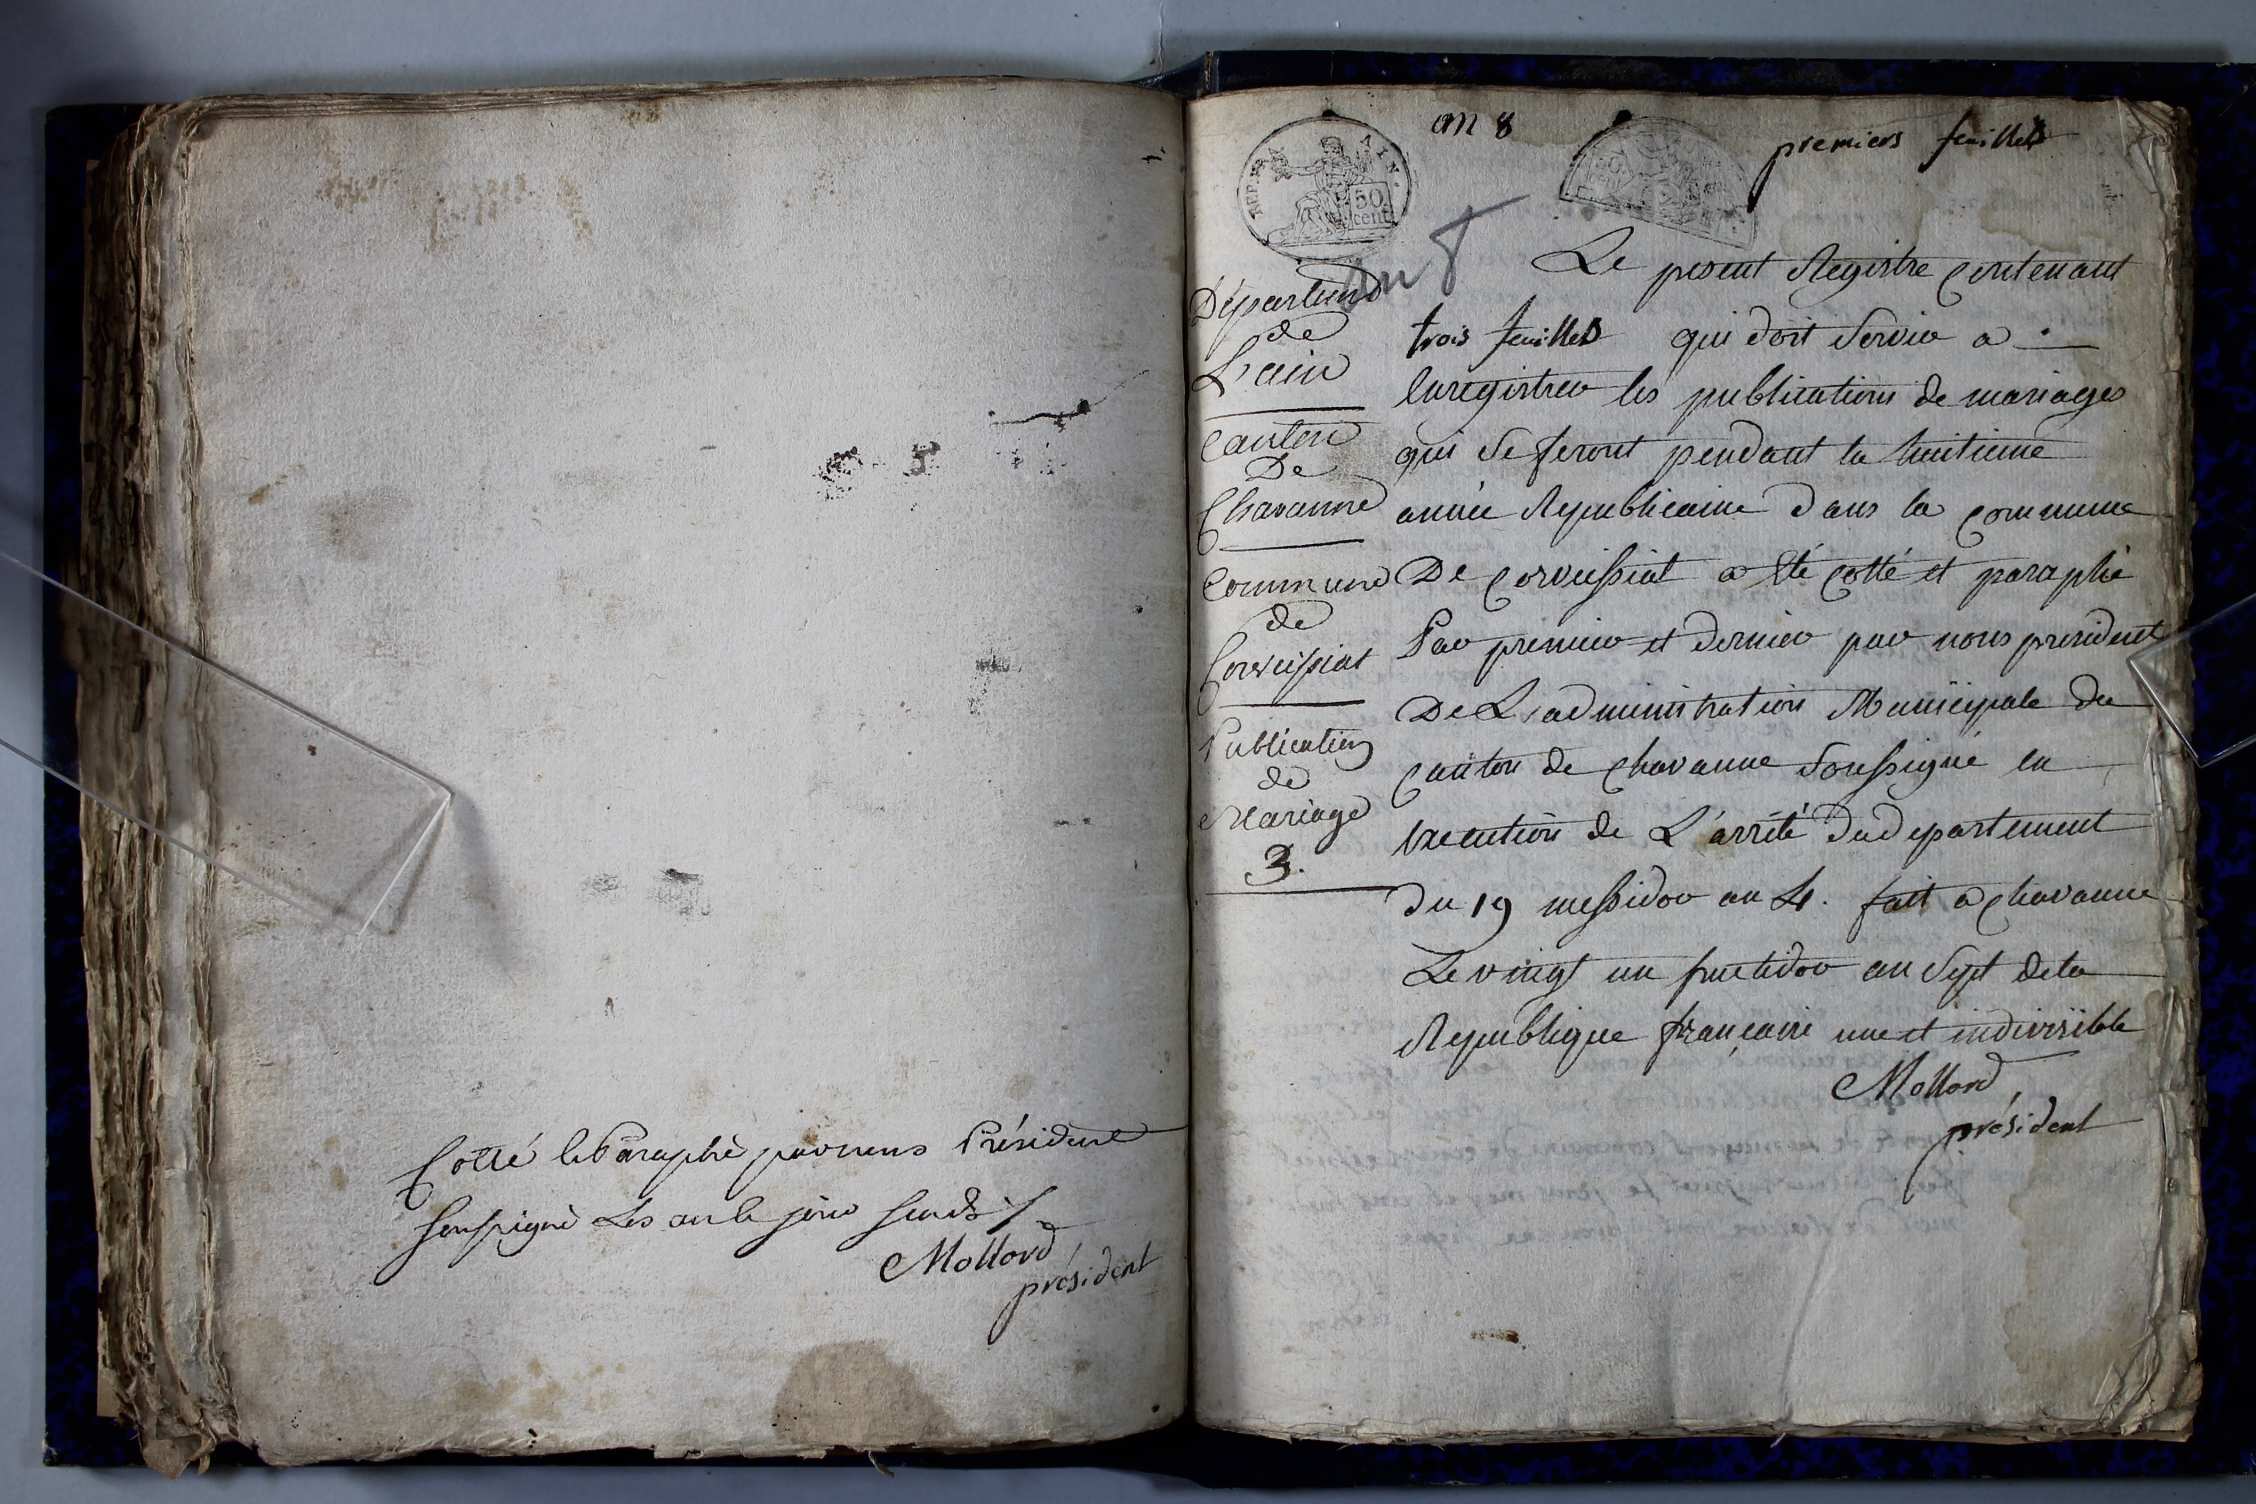 Cotté et Paraphé par nous Président
soussigné les an et jour susd.
Mollard
président
an 8
premiers feuillets
REP. FRA
AIN.
50
cent
an 8
Départemt
de
L'ain
Canton
De
Chavanne
Commune
de
Corveissiat
Publication
de
Mariage
3.
Le present Registre Contenant
trois feuillets qui doit Servir a
Enregistrer les publications de mariages
qui se feront pendant la huitieme
année Republicaine Dans la commune
De Corveissiat a été cotté et paraphé
Par premier et dernier par nous president
De L'administration Municipale du
canton de Chavanne Soussigné en
execution de L'arrêté du departement
du 19 messidor an 4. fait a Chavanne
Le vingt un fructidor an Sept de la
Republique française une et indivisible
Mollard
président